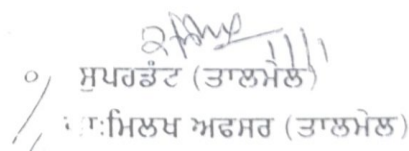 ਸੁਪਰਡੰਟ (ਤਾਲਮੇਲ)
ਾ:ਮਿਲਖ ਅਫਸਰ (ਤਾਲਮੇਲ)